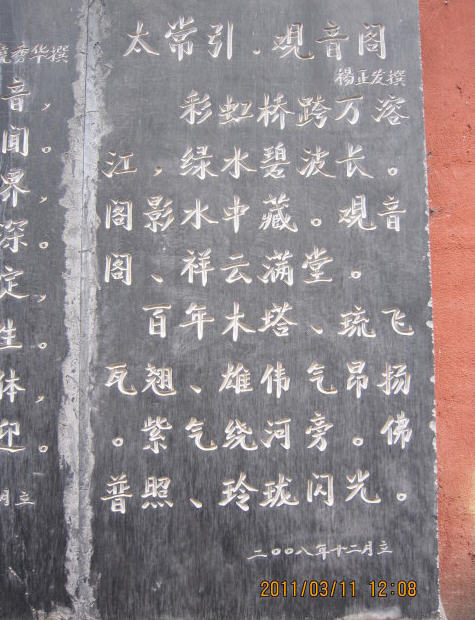 太常引·观音阁
楊正发撰
彩虹桥跨万溶
江，绿水碧波长。
阁影水中藏。观音
阁、祥云满堂。
百年木塔、琉飞
瓦翘、雄伟气昂扬
。紫气绕河旁。佛
普照、玲珑闪光。
二〇〇八年十二月立
华撰
音，
闻。
界，
深。
定，
生。
体，
迎。
月立
2011/03/11 12:08